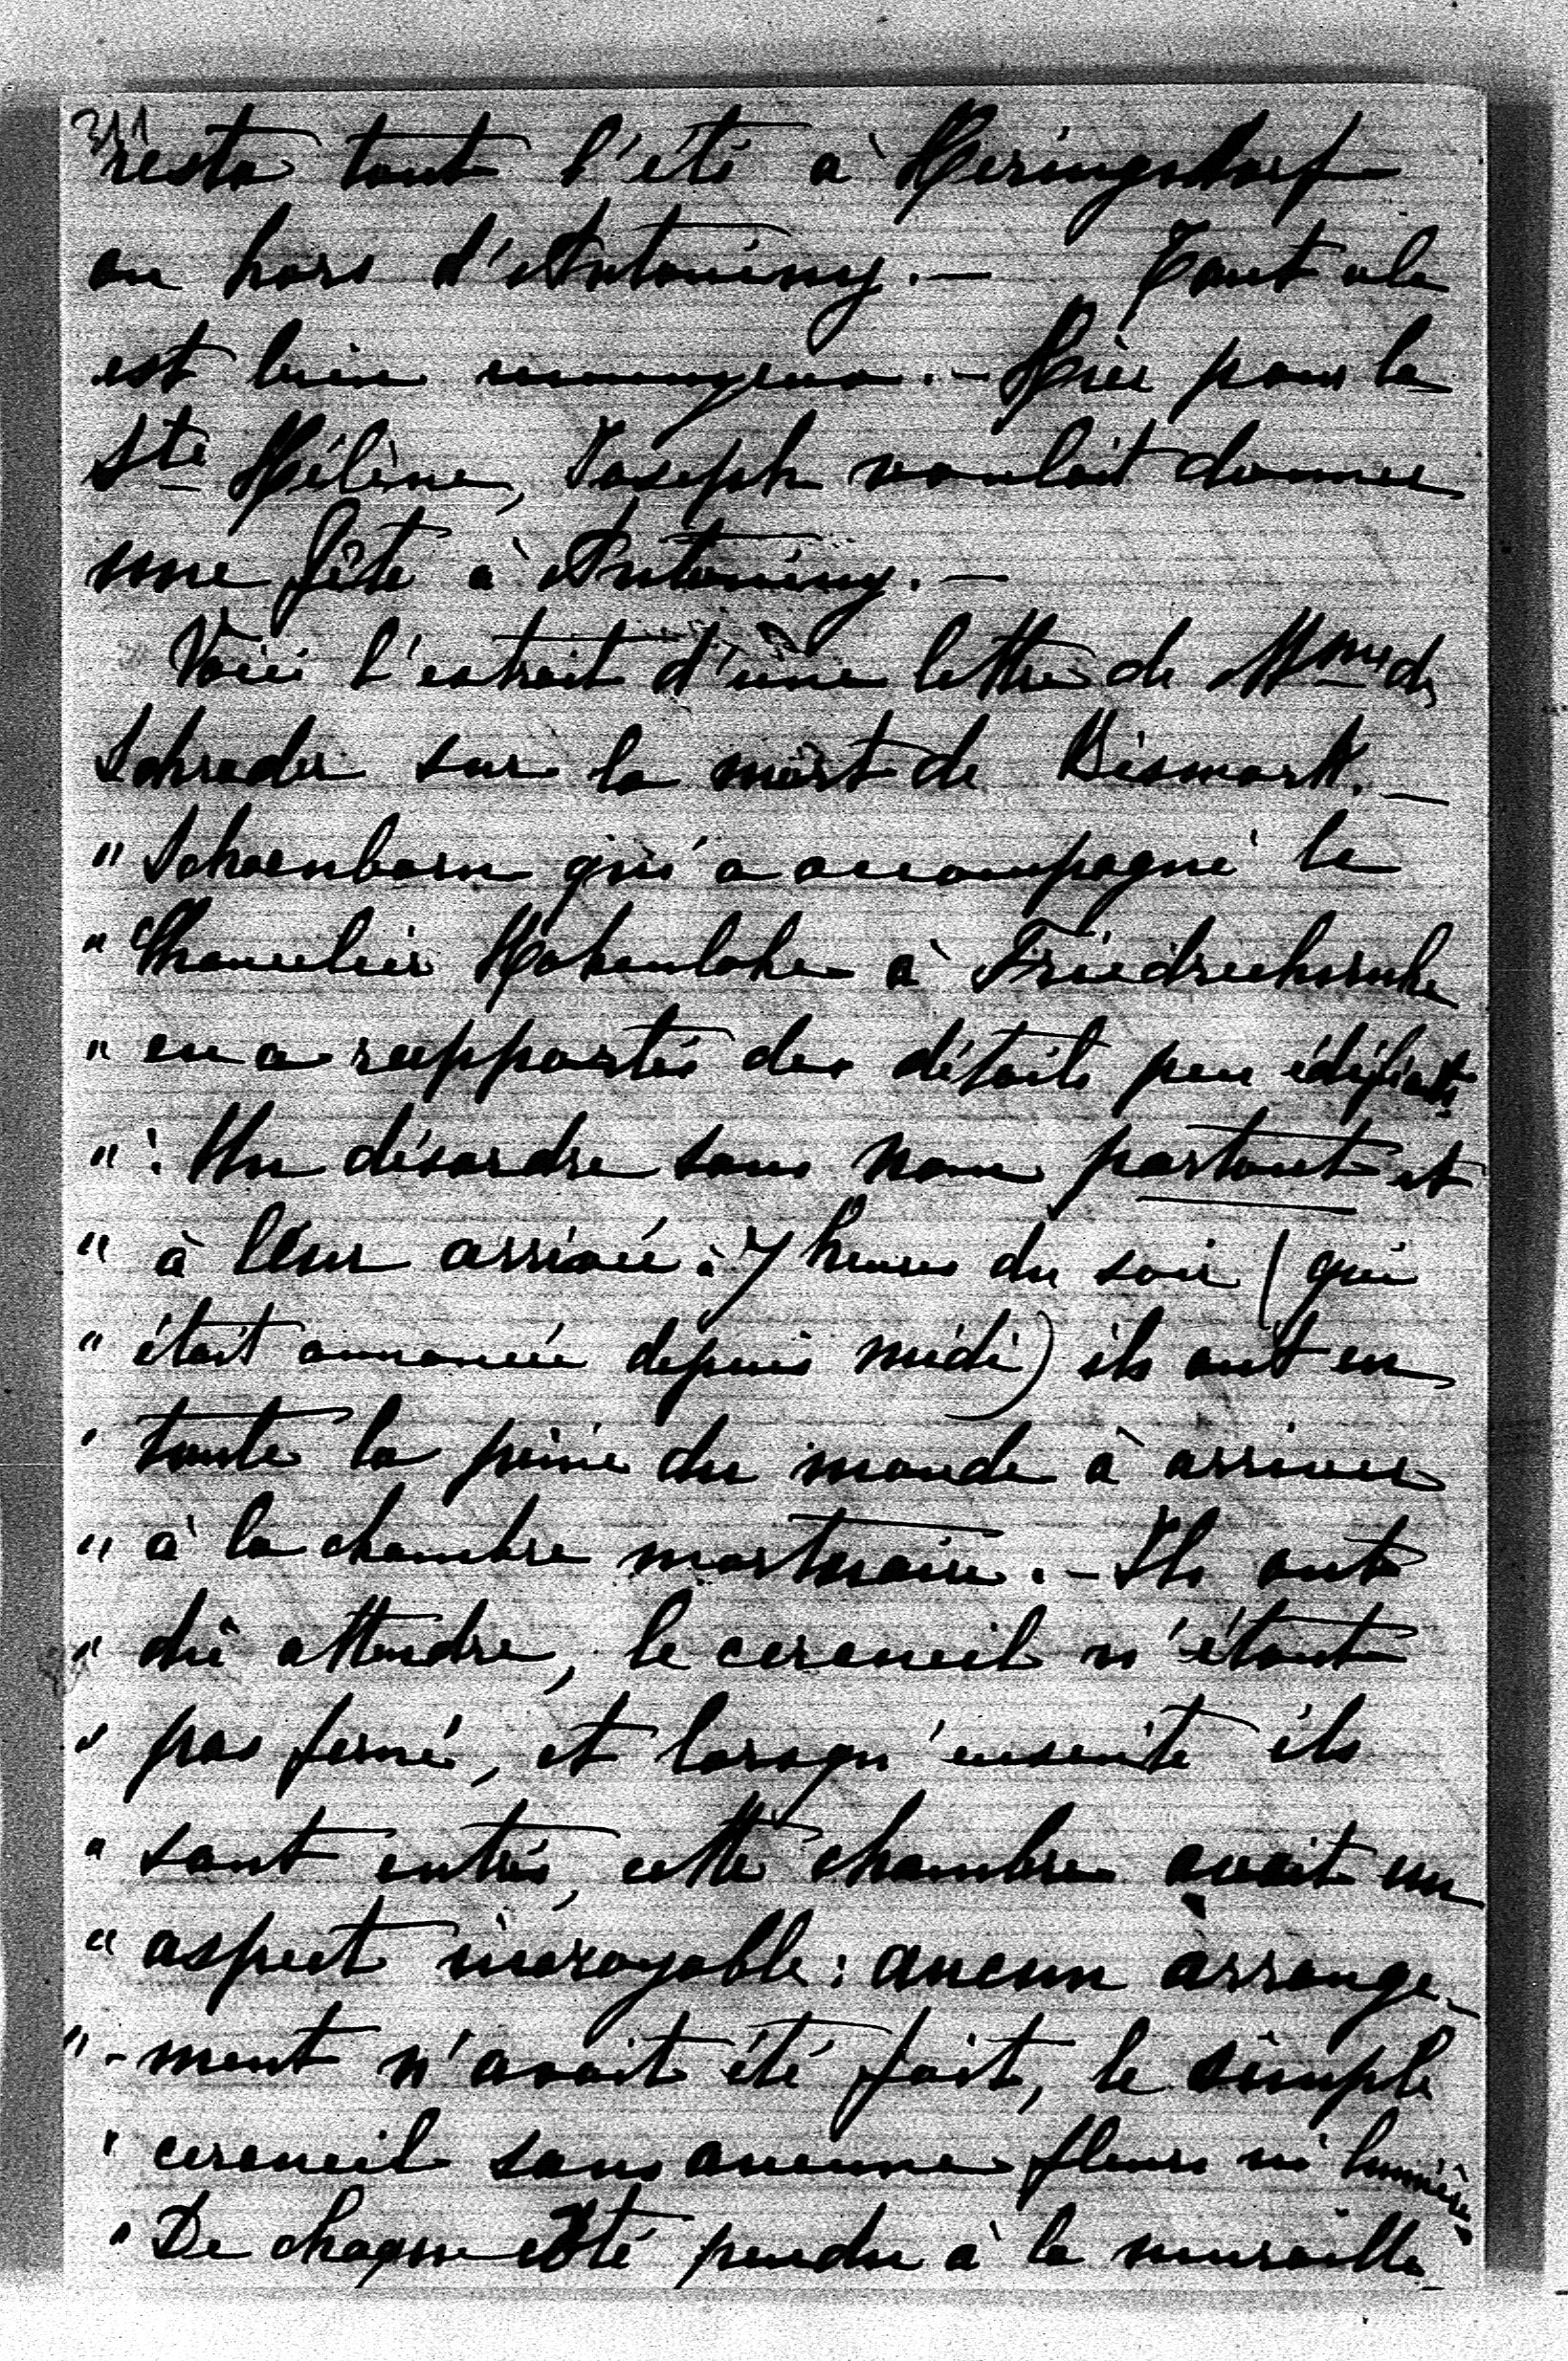 311
resta tout l'été à Heringsdorf
ou hors d'Antoniny. — Tout cela
est bien ennuyeux. — Hier pour la
Ste Hélène, Joseph voulait donner
une fête à Antoniny. —
Voici l'extrait d'une lettre de Mme de
Schrader sur la mort de Bismark. —
" Schoenborn qui a accompagné le
" Chancelier Hohenlohe à Friedrichsruhe
" en a rapportés des détails peu édifiants
" : Un désordre sans nom partout et
" à leur arrivée à 7 heures du soir (qui
" était annoncée depuis midi) ils ont eu
" toute la peine du monde à arriver
" à la chambre mortuaire. — Ils ont
" dû attendre, le cercueil n'étant
" pas fermé, et lorsqu'ensuite ils
" sont entrés, cette chambre avait un
" aspect incroyable : aucun arrange-
" -ment n'avait été fait, le simple
" cercueil sans aucune fleurs ni lumière.
" De chaque côté pendu à la muraille